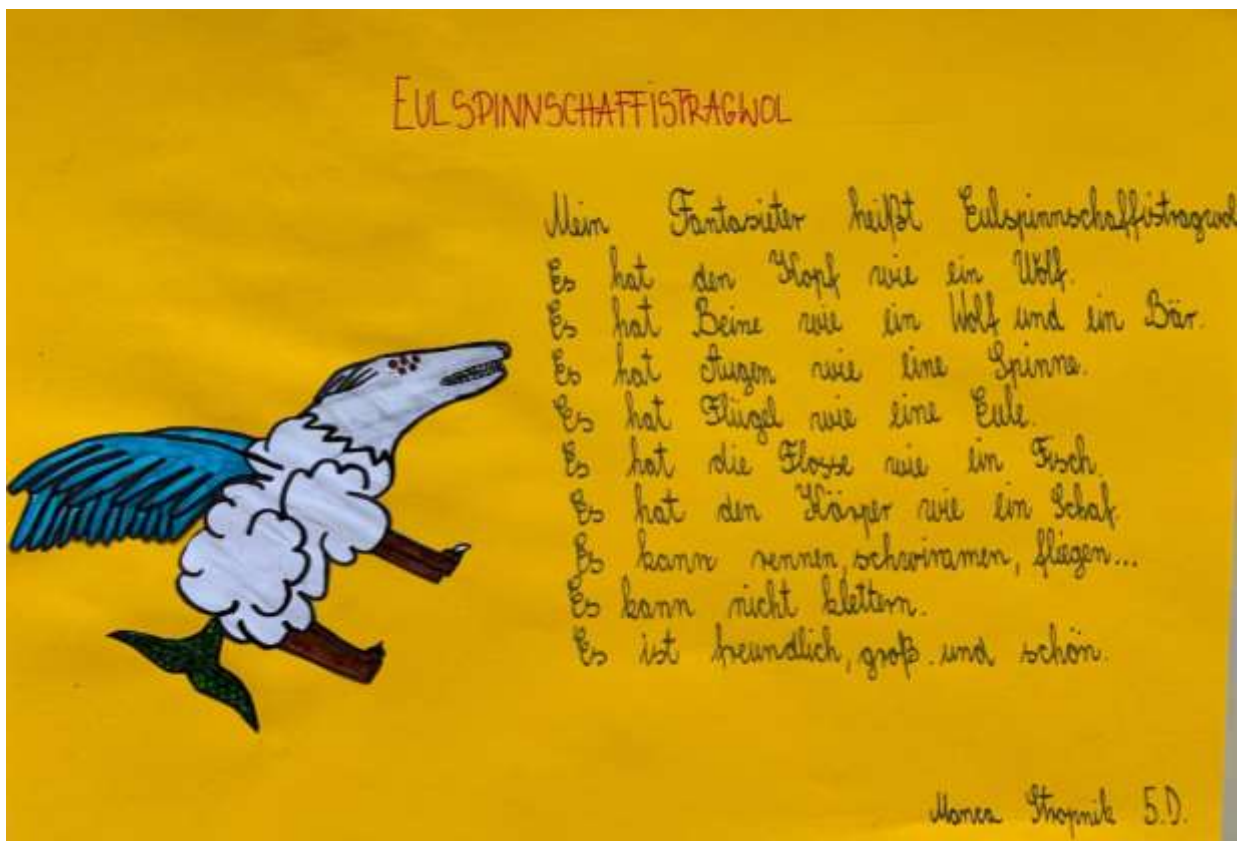 EULSPINNSCHAFFISTRAGWOL
Mein Fantasieter heißt Eulspinnschaffistragwol
Es hat den Kopf wie ein Wolf.
Es hat Beine wie ein Wolf und ein Bär.
Es hat Augen wie eine Spinne.
Es hat Flügel wie eine Eule.
Es hat die Flosse wie ein Fisch.
Es hat den Körper wie ein Schaf.
Es kann rennen, schwimmen, fliegen...
Es kann nicht klettern.
Es ist freundlich, groß und schön.
Manca Stropnik 5.D.